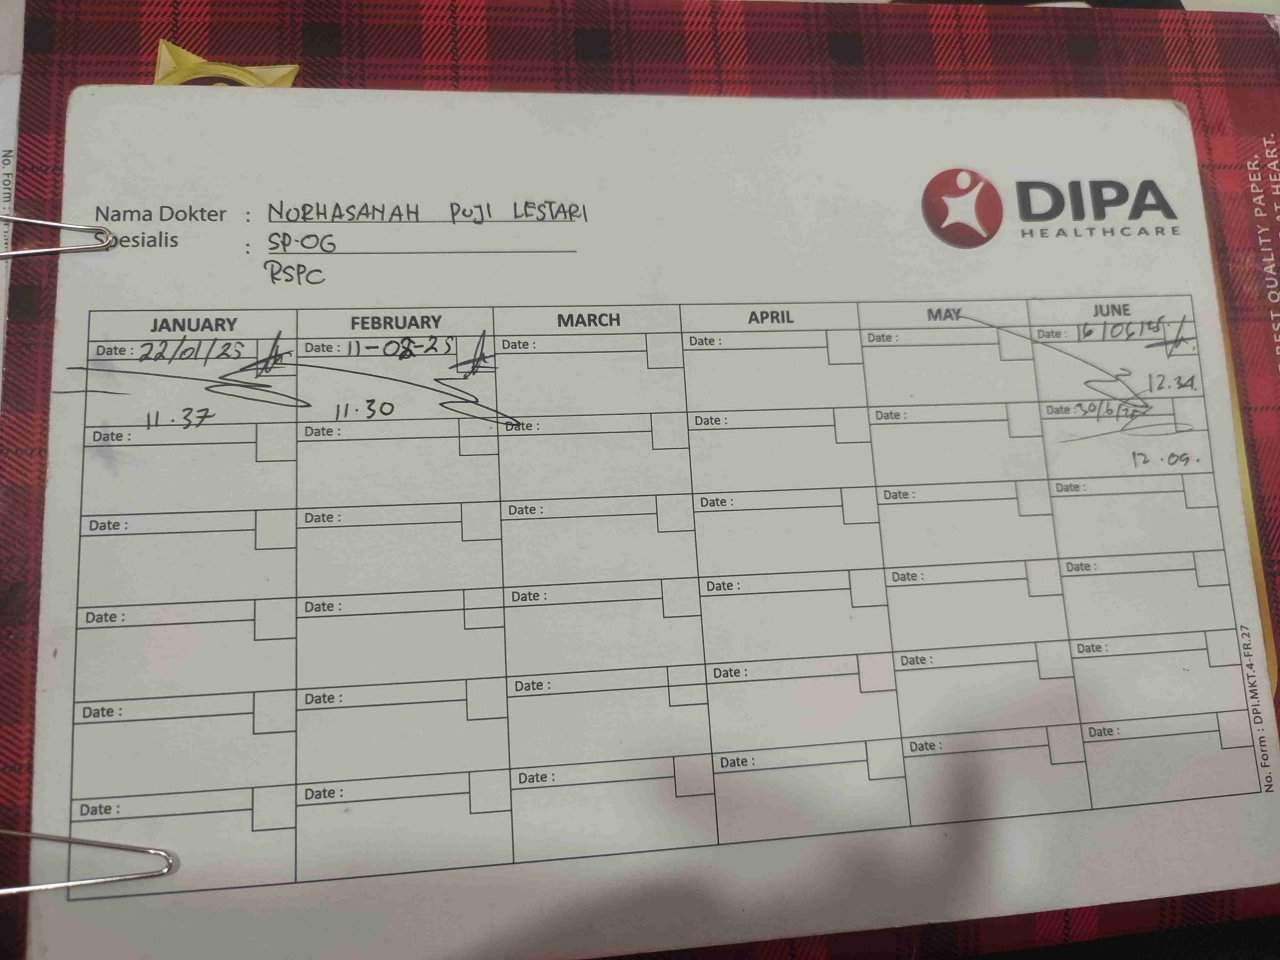 Nama Dokter : NORHASANAH PUJI LESTARI
Spesialis : SP-OG
RSPC
DIPA
HEALTHCARE
JANUARY FEBRUARY MARCH APRIL MAY JUNE
Date : 22/01/25 Date : 11-02-25 Date : Date : Date : Date : 16/06/25
11.37 11.30 12.34.
Date : Date : Date : Date : Date : Date : 30/6/25
12.09.
Date : Date : Date : Date : Date : Date :
Date : Date : Date : Date : Date : Date :
Date : Date : Date : Date : Date : Date :
Date : Date : Date : Date : Date : Date :
No. Form : DPI.MKT.4-FR.27
No. Form :
BEST QUALITY PAPER.
HEART.